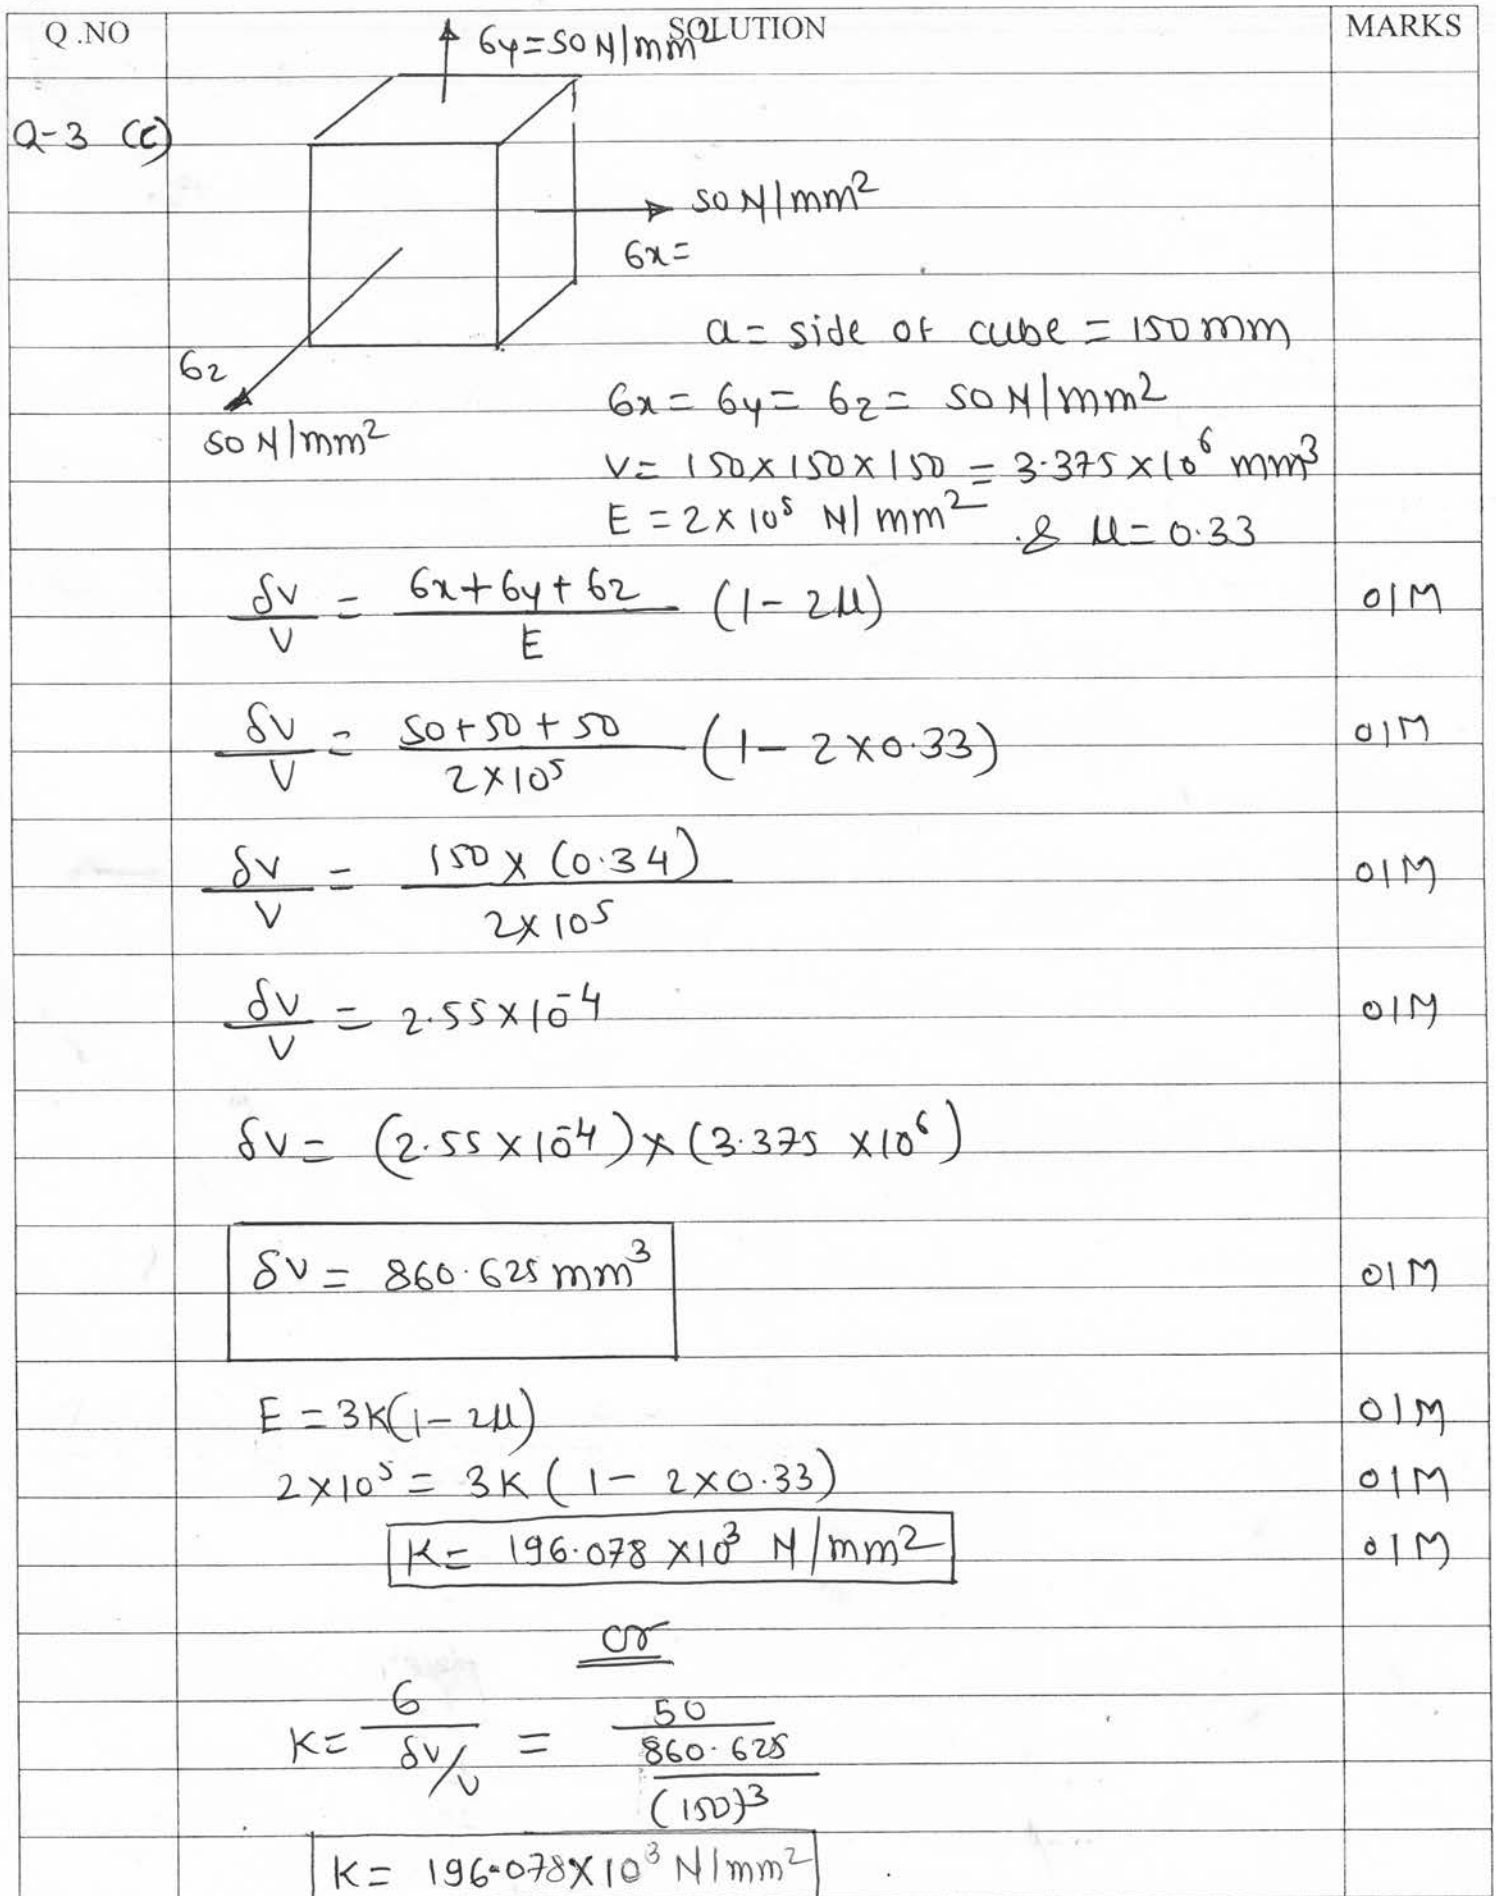 Q.NO SOLUTION MARKS
σy=50 N/mm²
Q-3 (C)
50 N/mm²
σx=
a= side of cube = 150mm
σz
σx= σy= σz= 50 N/mm²
50 N/mm²
V= 150×150×150 = 3.375×10⁶ mm³
E = 2×10⁵ N/mm² & μ= 0.33
δV/V = (σx+σy+σz)/E (1-2μ) 01M
δV/V = (50+50+50)/(2×10⁵) (1-2×0.33) 01M
δV/V = 150×(0.34)/(2×10⁵) 01M
δV/V = 2.55×10⁻⁴ 01M
δV= (2.55×10⁻⁴)×(3.375×10⁶)
δV= 860.625 mm³ 01M
E = 3K(1-2μ) 01M
2×10⁵ = 3K(1-2×0.33) 01M
K= 196.078×10³ N/mm² 01M
or
K= σ/(δV/V) = 50/(860.625/(150)³)
K= 196.078×10³ N/mm²